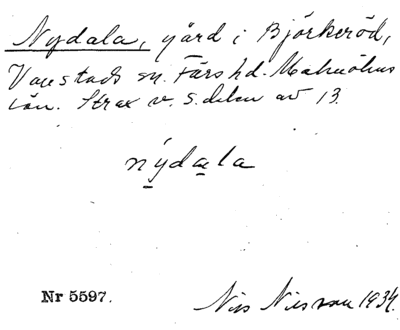 Nydala, gård i Björkeröd,
Vanstads sn. Färs hd. Malmöhus
län. Strax v. s. delen av 13.
nýdala
Nr 5597.
Nils Nilsson 1934.